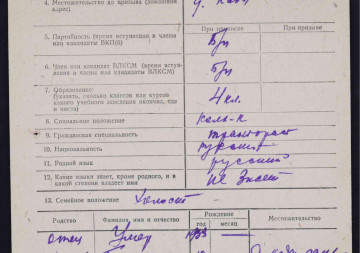 4. Местожительство до призыва (домашний
адрес)
При призыве
5. Партийность (время вступления в члены
или кандидаты ВКП(б)
Б/п
6. Член или кандидат ВЛКСМ (время вступ-
ления в члены или кандидаты ВЛКСМ)
Б/п
7. Образование
(указать, сколько классов или курсов
какого учебного заведения окончил, где
и когда)
4 кл.
8. Социальное положение
кол-к
9. Гражданская специальность
тракторист
10. Национальность
русский
11. Родной язык
русский
12. Какие языки знает, кроме родного, и в
какой степени владеет ими
не знает
13. Семейное положение
холост
Родство
Фамилия, имя и отчество
Рождение
год
месяц
Местожительство
отец
Умер
1933